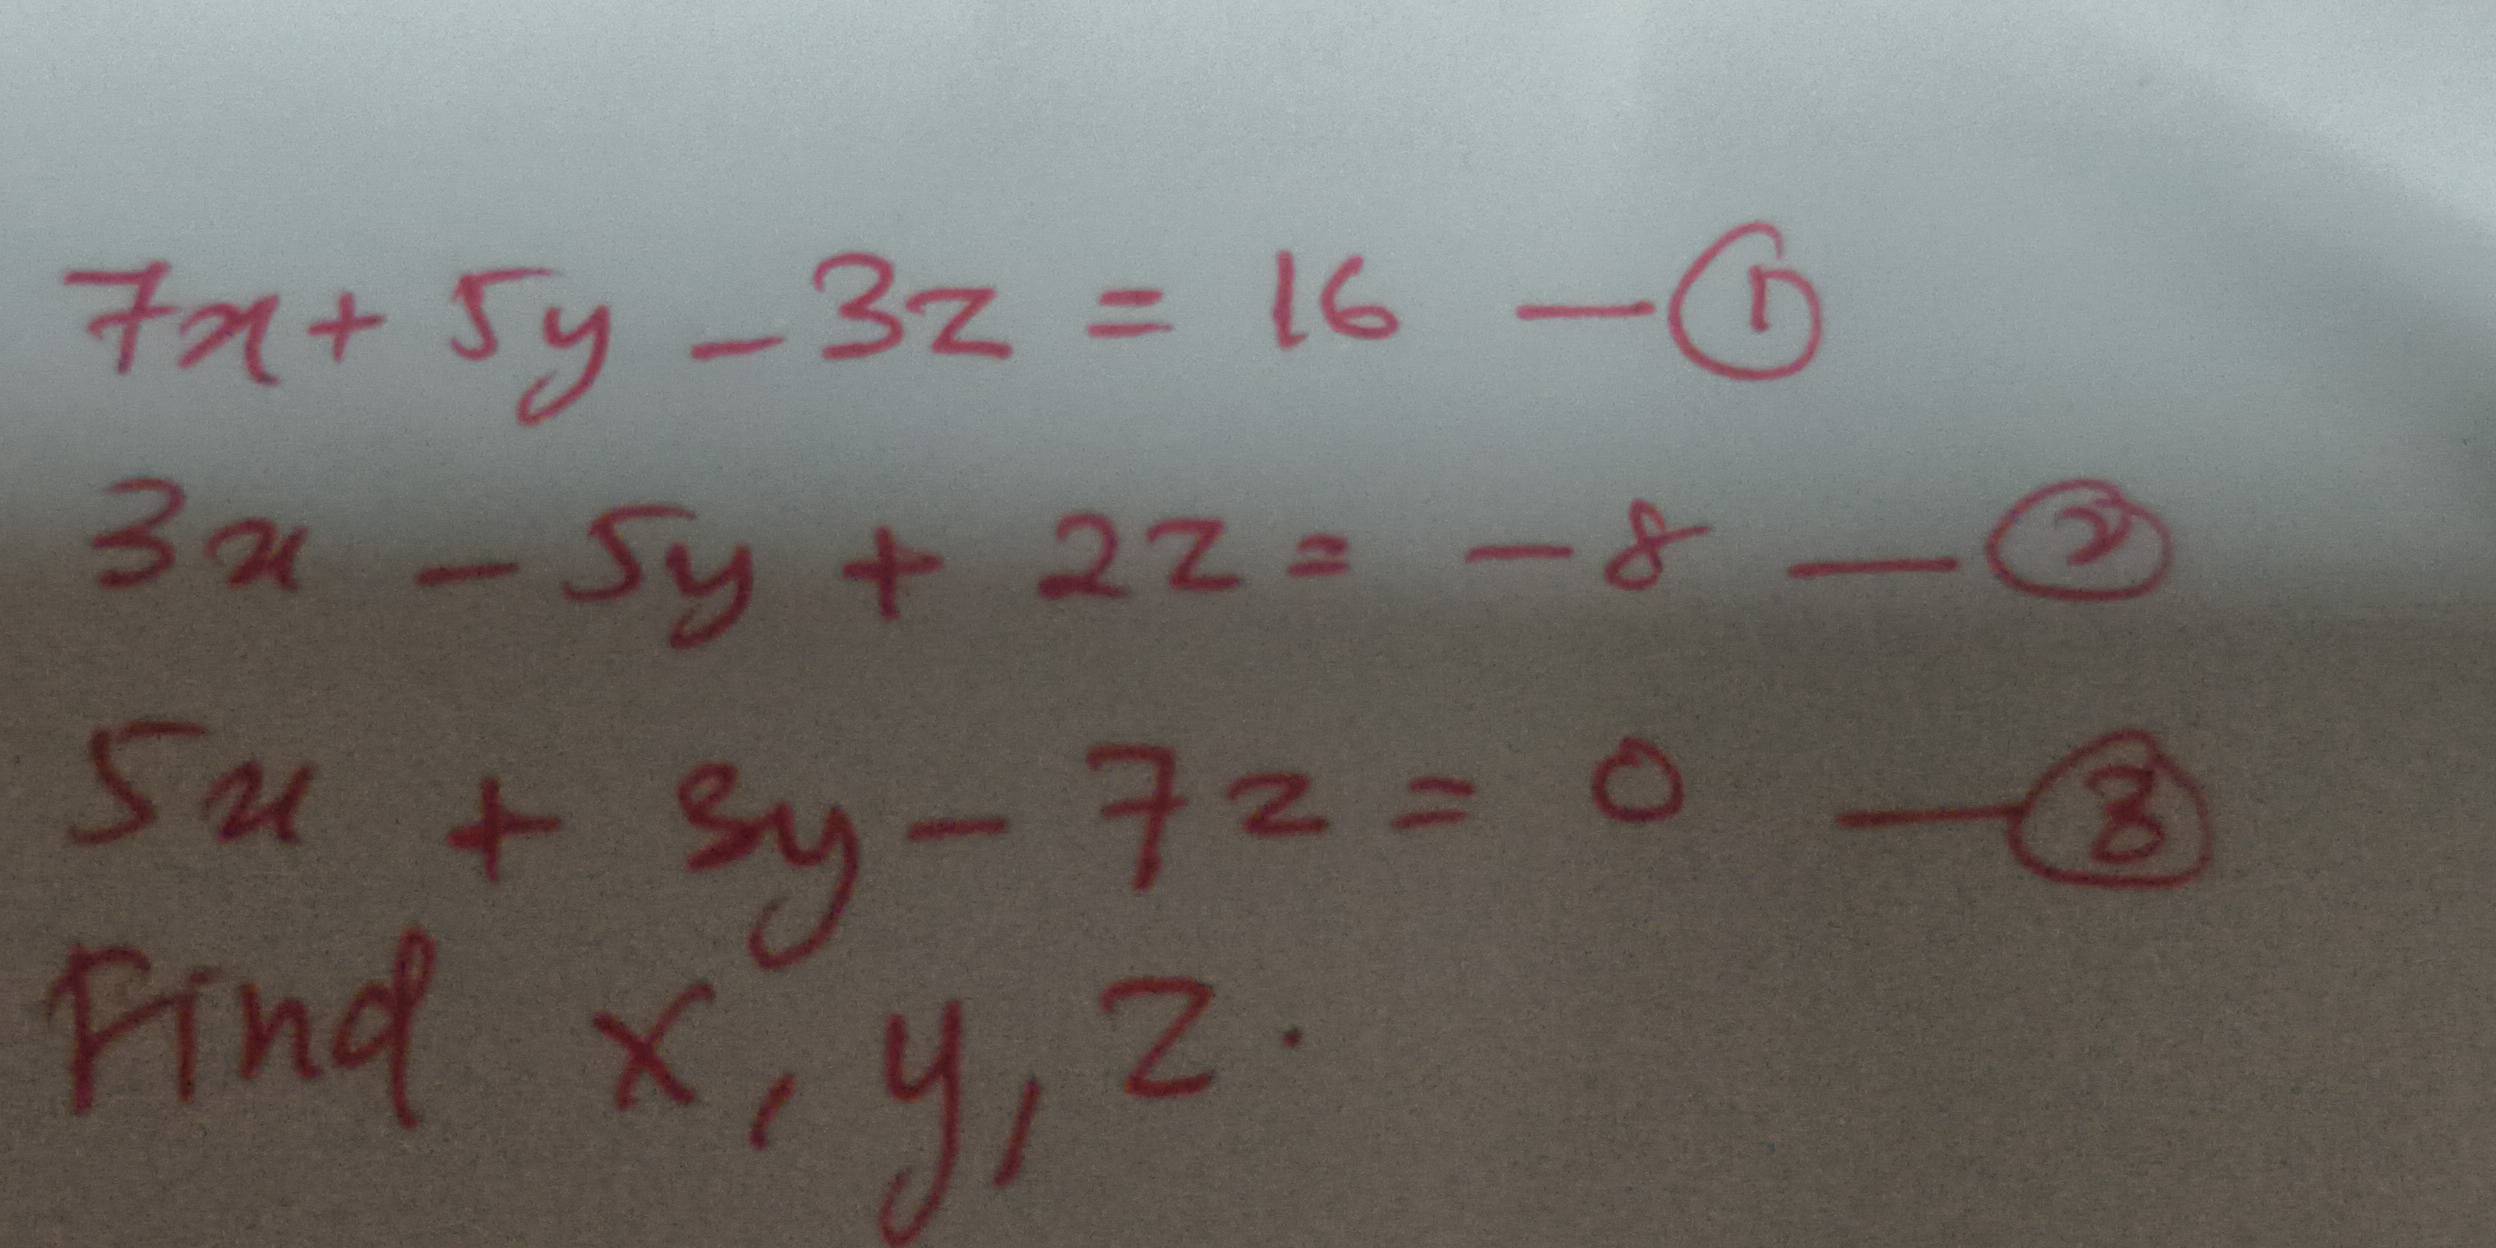 7x + 5y - 3z = 16 — ①
3x - 5y + 2z = -8 — ②
5x + 3y - 7z = 0 — ③
Find x, y, z.